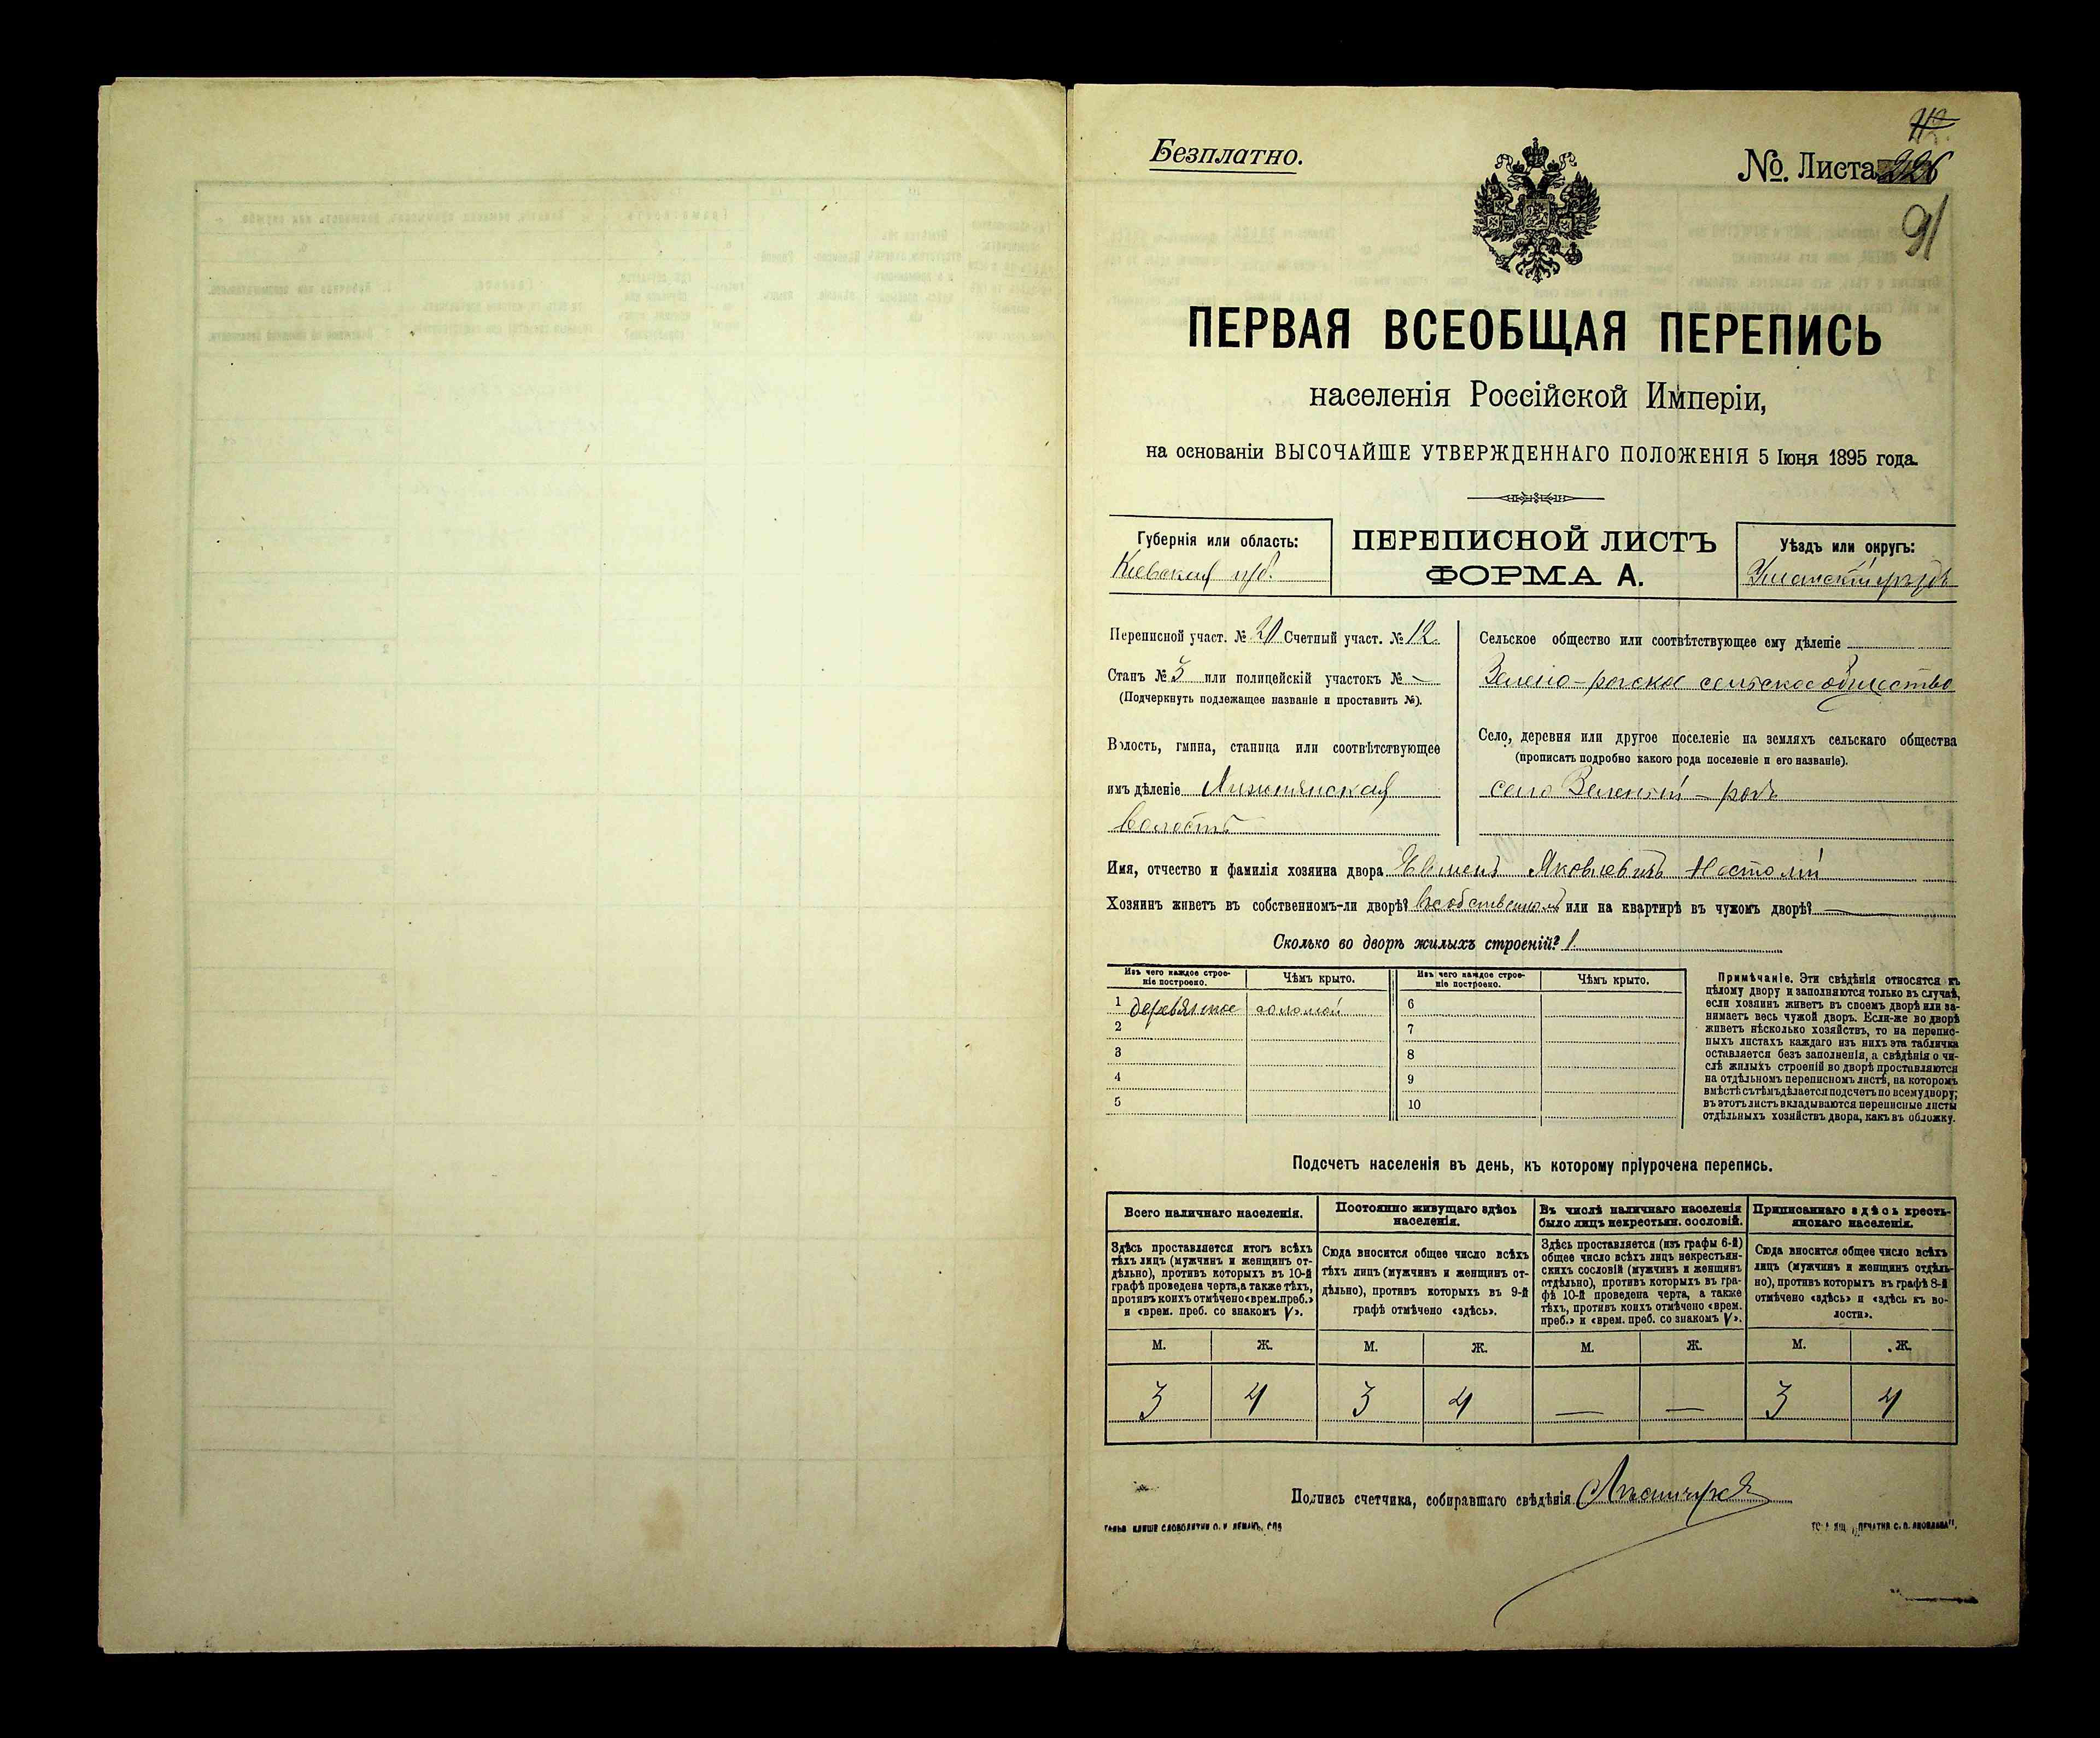 Безплатно.
№. Листа 226
91
ПЕРВАЯ ВСЕОБЩАЯ ПЕРЕПИСЬ
населенія Россійской Имперіи,
на основаніи ВЫСОЧАЙШЕ УТВЕРЖДЕННАГО ПОЛОЖЕНІЯ 5 Іюня 1895 года.
Губернія или область:
Кіевская губ.
ПЕРЕПИСНОЙ ЛИСТЪ
ФОРМА А.
Уѣздъ или округъ:
Уманскій уѣздъ
Переписной участ. № 21 Счетный участ. № 12.
Станъ № 3 или полицейскій участокъ № —
(Подчеркнуть подлежащее названіе и проставить №).
Волость, гмина, станица или соотвѣтствующее
имъ дѣленіе
волость
Сельское общество или соотвѣтствующее ему дѣленіе
Зелено-рогское сельское общество
Село, деревня или другое поселеніе на земляхъ сельскаго общества
(прописать подробно какого рода поселеніе и его названіе).
село Зеленый-рогъ
Имя, отчество и фамилія хозяина двора Яковлевичъ
Хозяинъ живетъ въ собственномъ-ли дворѣ? въ собственномъ или на квартирѣ въ чужомъ дворѣ? —
Сколько во дворѣ жилыхъ строеній? 1
Изъ чего каждое строе-
ніе построено.
Чѣмъ крыто.
Изъ чего каждое строе-
ніе построено.
Чѣмъ крыто.
1 деревянное соломой
2
3
4
5
6
7
8
9
10
Примѣчаніе. Эти свѣдѣнія относятся къ
цѣлому двору и заполняются только въ случаѣ,
если хозяинъ живетъ въ своемъ дворѣ или за-
нимаетъ весь чужой дворъ. Если-же во дворѣ
живетъ нѣсколько хозяйствъ, то на перепис-
ныхъ листахъ каждаго изъ нихъ эта табличка
оставляется безъ заполненія, а свѣдѣнія о чи-
слѣ жилыхъ строеній во дворѣ проставляются
на отдѣльномъ переписномъ листѣ, на которомъ
вмѣстѣ съ тѣмъ дѣлается подсчетъ по всему двору;
въ этотъ листъ вкладываются переписные листы
отдѣльныхъ хозяйствъ двора, какъ въ обложку.
Подсчетъ населенія въ день, къ которому пріурочена перепись.
Всего наличнаго населенія.
Здѣсь проставляется итогъ всѣхъ
тѣхъ лицъ (мужчинъ и женщинъ от-
дѣльно), противъ которыхъ въ 10-й
графѣ проведена черта, а также тѣхъ,
противъ коихъ отмѣчено «врем. преб.»
и «врем. преб. со знакомъ V».
Постоянно живущаго здѣсь
населенія.
Сюда вносится общее число всѣхъ
тѣхъ лицъ (мужчинъ и женщинъ от-
дѣльно), противъ которыхъ въ 9-й
графѣ отмѣчено «здѣсь».
Въ числѣ наличнаго населенія
было лицъ некрестьян. сословій.
Здѣсь проставляется (изъ графы 6-й)
общее число всѣхъ лицъ некрестьян-
скихъ сословій (мужчинъ и женщинъ
отдѣльно), противъ которыхъ въ гра-
фѣ 10-й проведена черта, а также
тѣхъ, противъ коихъ отмѣчено «врем.
преб.» и «врем. преб. со знакомъ V».
Приписаннаго здѣсь кресть-
янскаго населенія.
Сюда вносится общее число всѣхъ
лицъ (мужчинъ и женщинъ отдѣль-
но), противъ которыхъ въ графѣ 8-й
отмѣчено «здѣсь» и «здѣсь къ во-
лости».
М. Ж. М. Ж. М. Ж. М. Ж.
3 4 3 4 — — 3 4
Подпись счетчика, собиравшаго свѣдѣнія